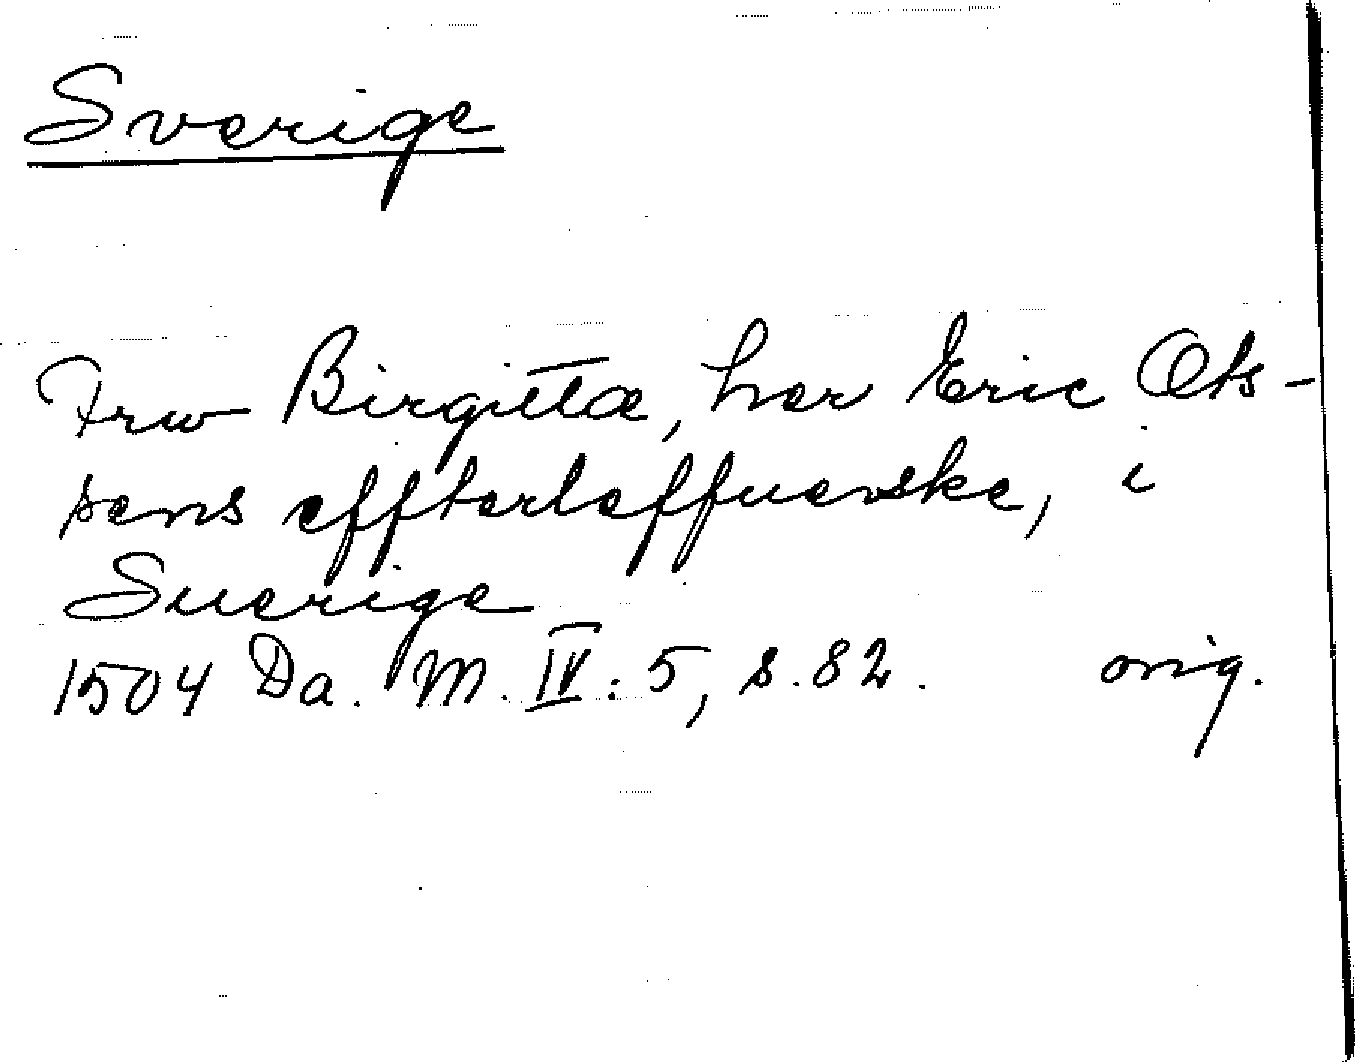 Sverige
Frw Birgitta, her Eric Ots-
sens effterleffuenske, i
Suerige
1504 Da. M. IV. 5, s. 82. orig.